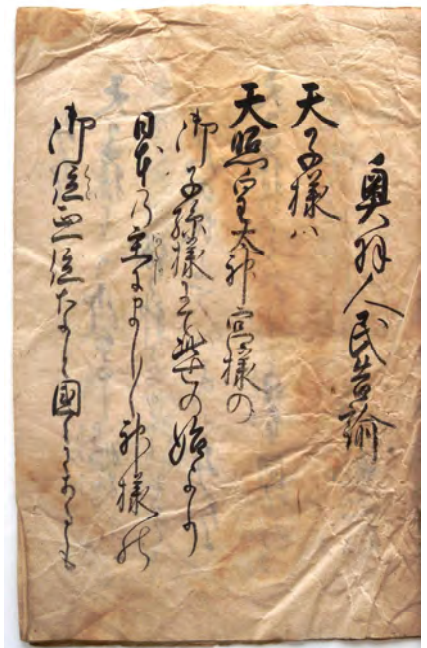 奥羽人民告諭
天子様ハ
天照皇太神宮様の
御子孫様にて此世の始より
日本の主にまし〳〵神様の
御位正一位なと國々にあるも